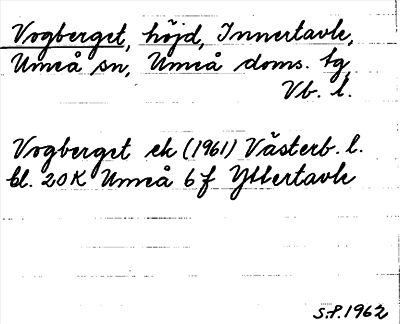 Vogberget, höjd, Innertavle,
Umeå sn, Umeå doms. tg,
Vb. l.
Vogberget ek (1961) Västerb. l.
bl. 20K Umeå 6f Yttertavle
S.P. 1962